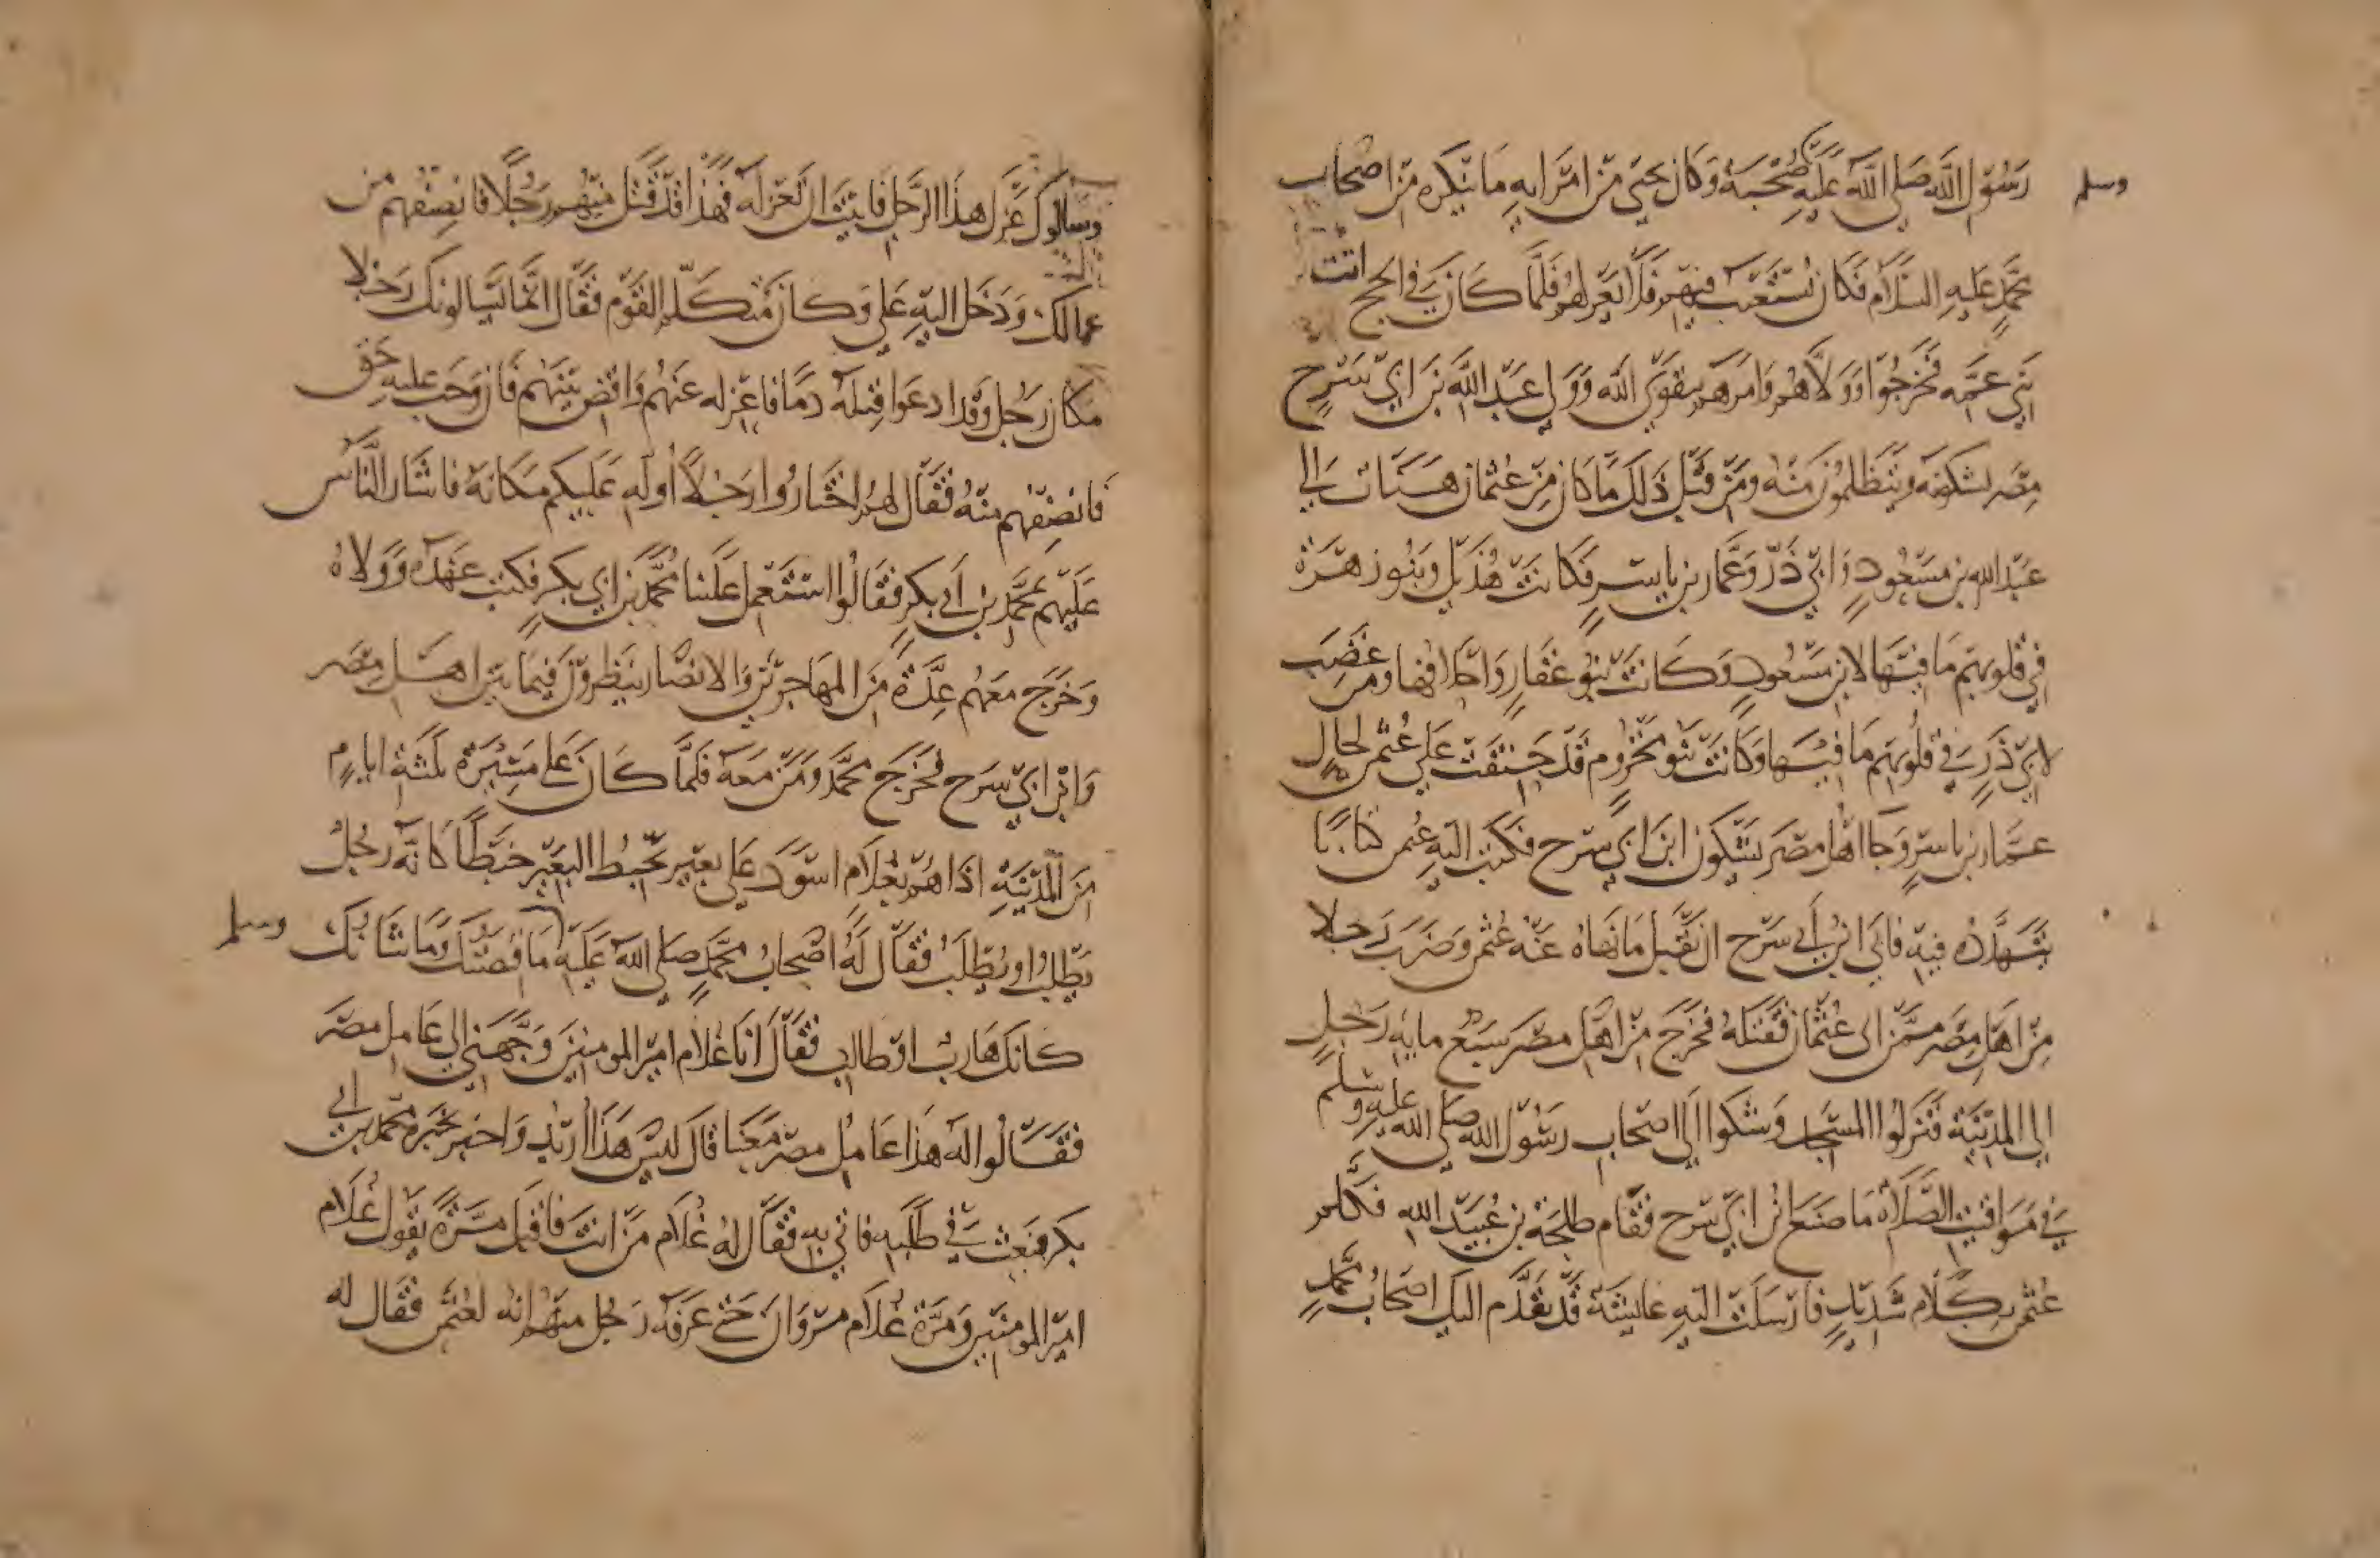 رسول الله صلى الله عليه وسلم صحبة وكان يجي من امرايه ما ينكره من اصحاب
محمد عليه السلام فكان يستعتب فيهم فلا يعزلهم فلما كان في الحجج
بني عمه فخرجوا وولاهم وامرهم بتقوى الله وولى عبد الله بن ابي سرح
مصر يشكونه ويتظلمون منه ومن قبل ذلك ما كان من عثمان هنات الى
عبد الله بن مسعود وابي ذر وعمار بن ياسر فكانت هذيل وبنو زهرة
في قلوبهم ما فيها لابن مسعود وكانت بنو غفار واحلافها ومن غضب
لابي ذر في قلوبهم ما فيها وكانت بنو مخزوم قد حنقت على عثمن لحال
عمار بن ياسر وجا اهل مصر يشكون ابن ابي سرح فكتب اليه عثمن كتابا
يتهدده فيه فابى ابن أبي سرح ان يقبل ما نهاه عنه عثمن وضرب رجلا
من اهل مصر ممن اتى عثمان فقتله فخرج من اهل مصر سبع مايه رجل
الى المدينة فنزلوا المسجد وشكوا الى اصحاب رسول الله صلى الله عليه وسلم
في مواقيت الصلاة ما صنع ابن ابي سرح فقام طلحة بن عبيد الله فكلم
عثمن بكلام شديد فارسلت اليه عايشة قد تقدم اليك اصحاب محمد
وسالوك عزل هذا الرجل فابيت ان تعزله فهذا قد قتل منهم رجلا فانصفهم من
عمالك ودخل اليه علي وكان متكلم القوم فقال انما يسالونك رجلا
مكان رجل وقد ادعوا قبله دما فاعزله عنهم واقض بينهم فان وجب عليه حق
فانصفهم منه فقال لهم اختاروا رجلا أوليه عليكم مكانه فاشار الناس
عليهم محمد بن أبي بكر فقالوا استعمل علينا محمد بن ابي بكر فكتب عهده وولاه
وخرج معهم عدة من المهاجرين والانصار ينظرون فيما بين اهل مصر
وابن ابي سرح فخرج محمد ومن معه فلما كان على مسيرة ثلثة ايام
من المدينة اذا هم بغلام اسود على بعير يخبط البعير خبطا كانه رجل
يطلب او يطلب فقال له اصحاب محمد صلى الله عليه وسلم ما قصتك وما شانك
كانك هارب او طالب فقال انا غلام امير المومنين وجهني الى عامل مصر
فقالوا له هذا عامل مصر معنا قال ليس هذا أريد واخبر بخبره محمد بن ابي
بكر فبعث في طلبه فاتي به فقال له غلام من انت فاقبل مرة يقول غلام
امير المومنين ومرة غلام مروان حتى عرفه رجل منهم انه لعثمن فقال له